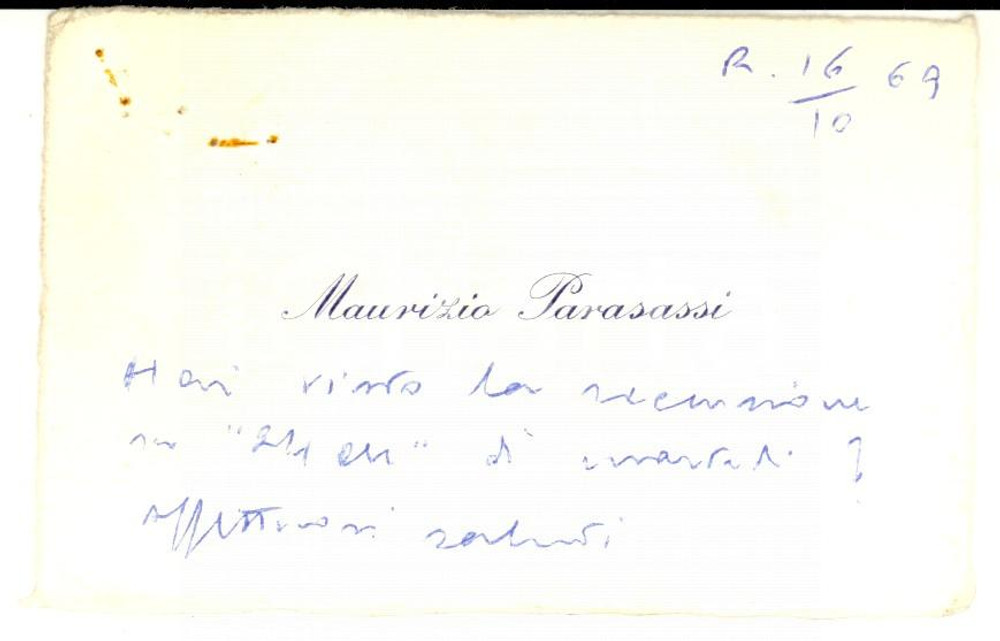 R. 16/10 69
Maurizio Parasassi
Hai visto la recensione
su "24 ore" di martedì ?
affettuosi saluti